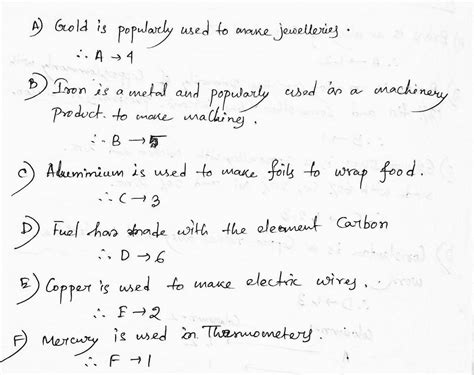 A) Gold is popularly used to make jewelleries.
∴ A → 4
B) Iron is a metal and popularly used as a machinery
product. to make machines.
∴ B → 5
C) Aluminium is used to make foils to wrap food.
∴ C → 3
D) Fuel has made with the element Carbon
∴ D → 6
E) Copper is used to make electric wires.
∴ E → 2
F) Mercury is used in Thermometers.
∴ F → 1